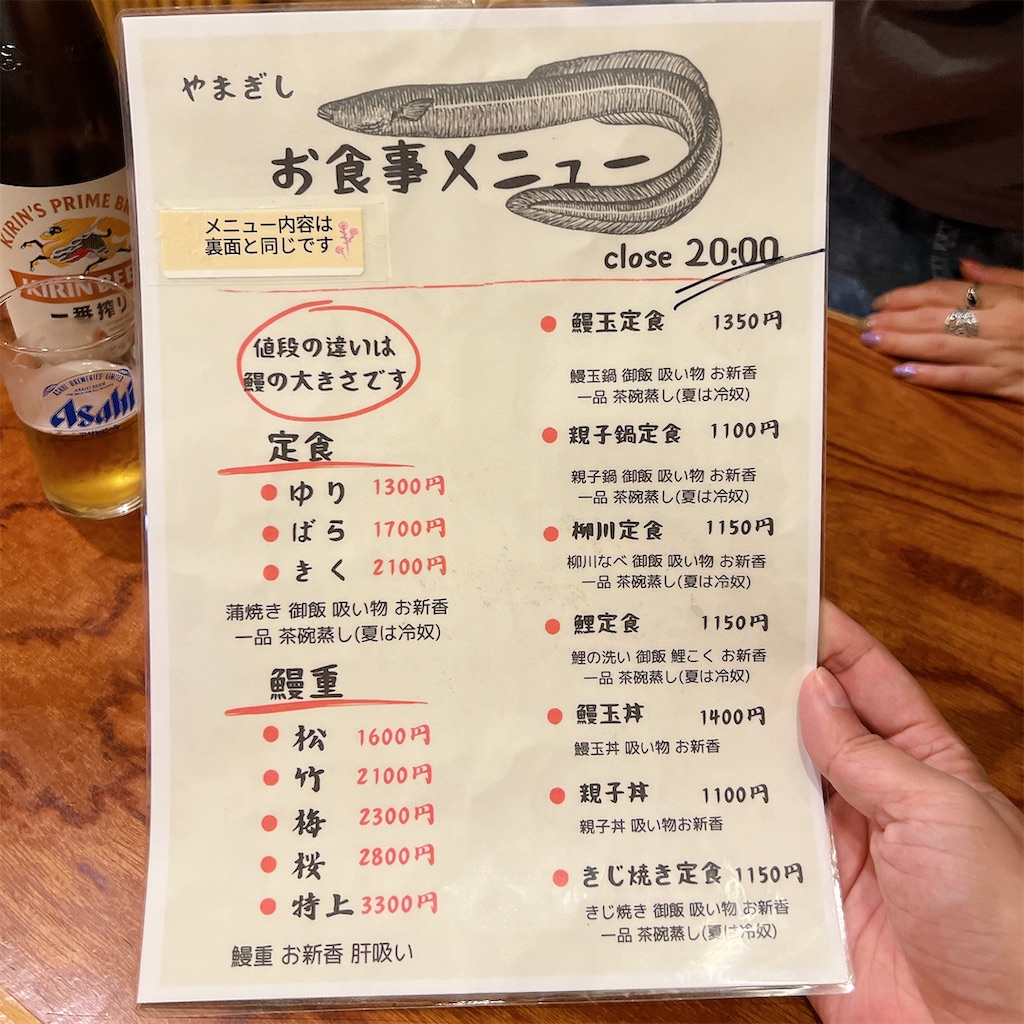 やまぎし
お食事メニュー
メニュー内容は
裏面と同じです
close 20:00
値段の違いは
鰻の大きさです
定食
ゆり 1300円
ばら 1700円
きく 2100円
蒲焼き 御飯 吸い物 お新香
一品 茶碗蒸し(夏は冷奴)
鰻重
松 1600円
竹 2100円
梅 2300円
桜 2800円
特上 3300円
鰻重 お新香 肝吸い
鰻玉定食 1350円
鰻玉鍋 御飯 吸い物 お新香
一品 茶碗蒸し(夏は冷奴)
親子鍋定食 1100円
親子鍋 御飯 吸い物 お新香
一品 茶碗蒸し(夏は冷奴)
柳川定食 1150円
柳川なべ 御飯 吸い物 お新香
一品 茶碗蒸し(夏は冷奴)
鯉定食 1150円
鯉の洗い 御飯 鯉こく お新香
一品 茶碗蒸し(夏は冷奴)
鰻玉丼 1400円
鰻玉丼 吸い物 お新香
親子丼 1100円
親子丼 吸い物お新香
きじ焼き定食 1150円
きじ焼き 御飯 吸い物 お新香
一品 茶碗蒸し(夏は冷奴)
KIRIN'S PRIME
KIRIN BEE
一番搾り
Asahi